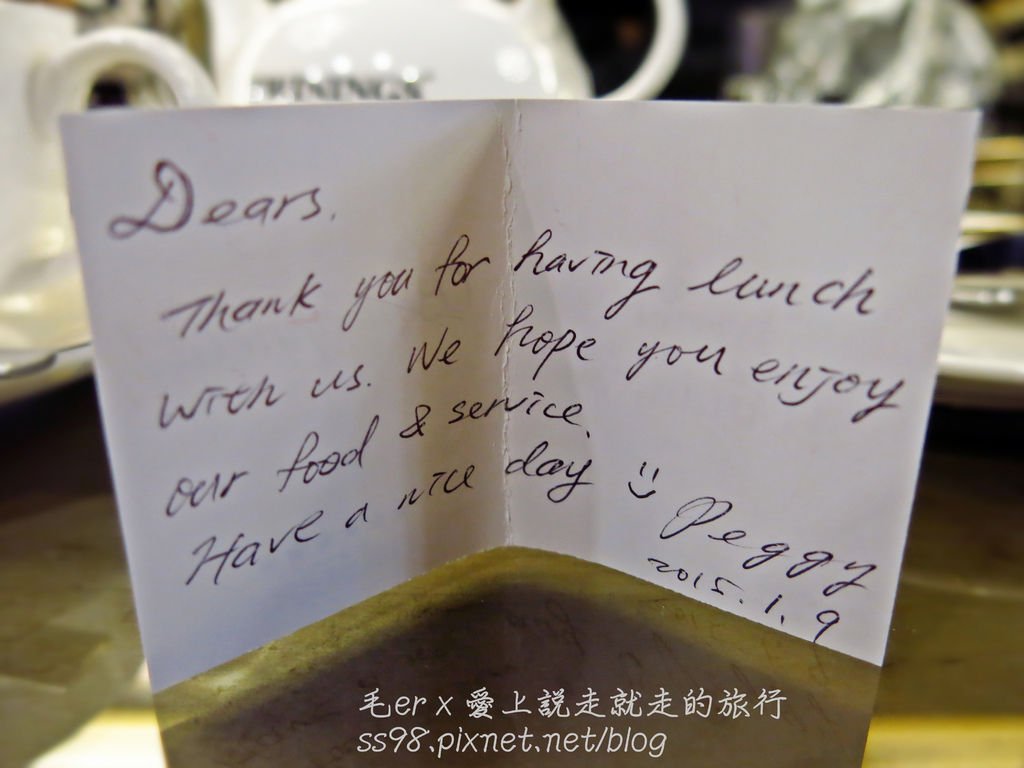 TWININGS
Dears,
Thank you for having lunch
with us. We hope you enjoy
our food & service.
Have a nice day
Peggy
2015.1.9
毛er x 愛上說走就走的旅行
ss98.pixnet.net/blog